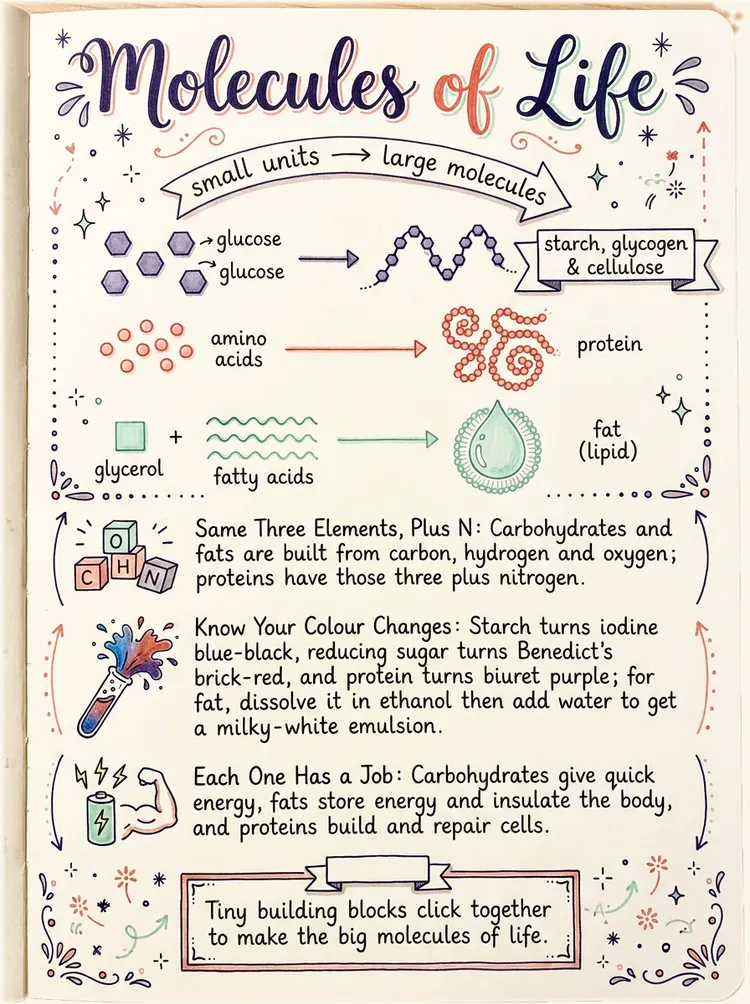 Molecules of Life
small units → large molecules
glucose
glucose
starch, glycogen
& cellulose
amino
acids
protein
glycerol
+
fatty acids
fat
(lipid)
O
C H N
Same Three Elements, Plus N: Carbohydrates and
fats are built from carbon, hydrogen and oxygen;
proteins have those three plus nitrogen.
Know Your Colour Changes: Starch turns iodine
blue-black, reducing sugar turns Benedict's
brick-red, and protein turns biuret purple; for
fat, dissolve it in ethanol then add water to get
a milky-white emulsion.
Each One Has a Job: Carbohydrates give quick
energy, fats store energy and insulate the body,
and proteins build and repair cells.
Tiny building blocks click together
to make the big molecules of life.